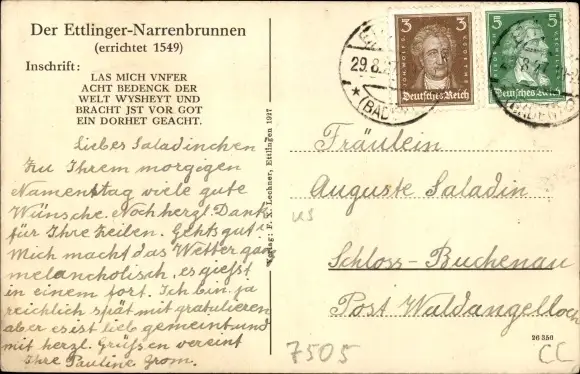 Der Ettlinger-Narrenbrunnen
(errichtet 1549)
Inschrift:
LAS MICH VNFER
ACHT BEDENCK DER
WELT WYSHEYT UND
BRACHT JST VOR GOT
EIN DORHET GEACHT.
Liebes Saladinchen
Zu Ihrem morgigen
Namenstag viele gute
Wünsche. Noch herzl. Dank
für Ihre Zeilen. Gehts gut
Mich macht das Wetter ganz
melancholisch, es giesst
in einem fort. Ich bin ja
reichlich spät mit gratulieren
aber es ist lieb gemeint und
mit herzl. Grüßen vereint
Ihre Pauline Grom.
Verlag: F. X. Lechner, Ettlingen 1917
3 3
JOH. WOLFG. V. GOETHE
Deutsches Reich
5 5
Deutsches Reich
29.8.
(BADEN)
Fräulein
Auguste Saladin
Schloss-Buchenau
Post Waldangelloch
us
26356
7505
CC